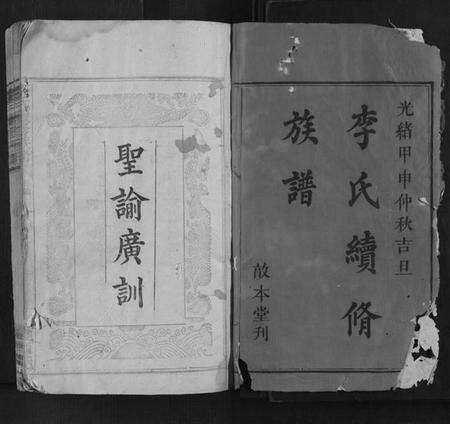 光緒甲申仲秋吉旦
李氏續脩
族譜
敵本堂刊
聖諭廣訓